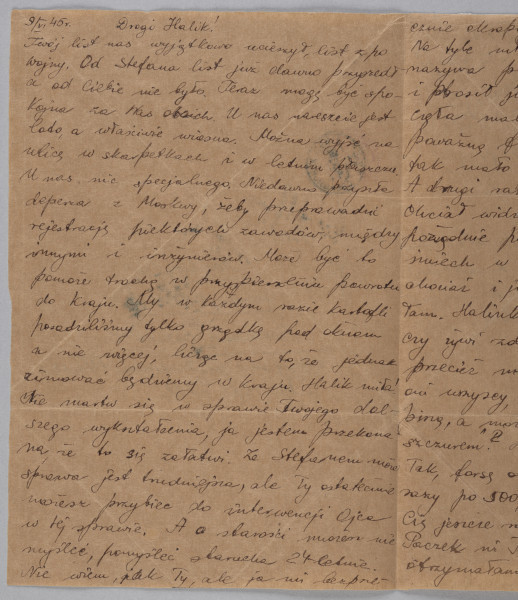 9/VI 45r. Drogi Halik!
Twój list nas wyjątkowo ucieszył, list z po
wojny. Od Stefana list już dawno przyszedł
a od Ciebie nie było. Teraz mogę być spo-
kojna za Was oboich. U nas nareszcie jest
lato, a właściwie wiosna. Można wyjść na
ulicę w skarpetkach i w letnim płaszczu.
U nas nic specjalnego. Niedawno przyszła
depesza z Moskwy, żeby przeprowadzić
rejestrację niektórych zawodów, między
innymi i inżynierów. Może być to
pomoże trochę w przyśpieszeniu powrotu
do kraju. My w każdym razie kartofli
posadziliśmy tylko grządkę pod oknem
a nie więcej, licząc na to, że jednak
zimować będziemy w kraju. Halik miła!
Nie martw się w sprawie Twojego dal-
szego wykształcenia, ja jestem przekona
na, że to się załatwi. Ze Stefanem
sprawa jest trudniejsza, ale Ty ostatecznie
możesz przybiec do interwencji Ojca
w tej sprawie. A o starości możesz nie
myśleć, pomyśleć starucha 24 letnia.
Nie wiem, jak Ty, ale ja
cznie
Na tyle
nazywa
i prosił
częła
poważną
tak mało
A drugi raz
Chciał
porządnie
śmiech w
chociaż i
Tam. Halinko
czy żywi
przecież
oni wszyscy,
a
szczurem?
Tak, forsę
razy po 500
Cię jeszcze
Paczek ni
otrzymałam